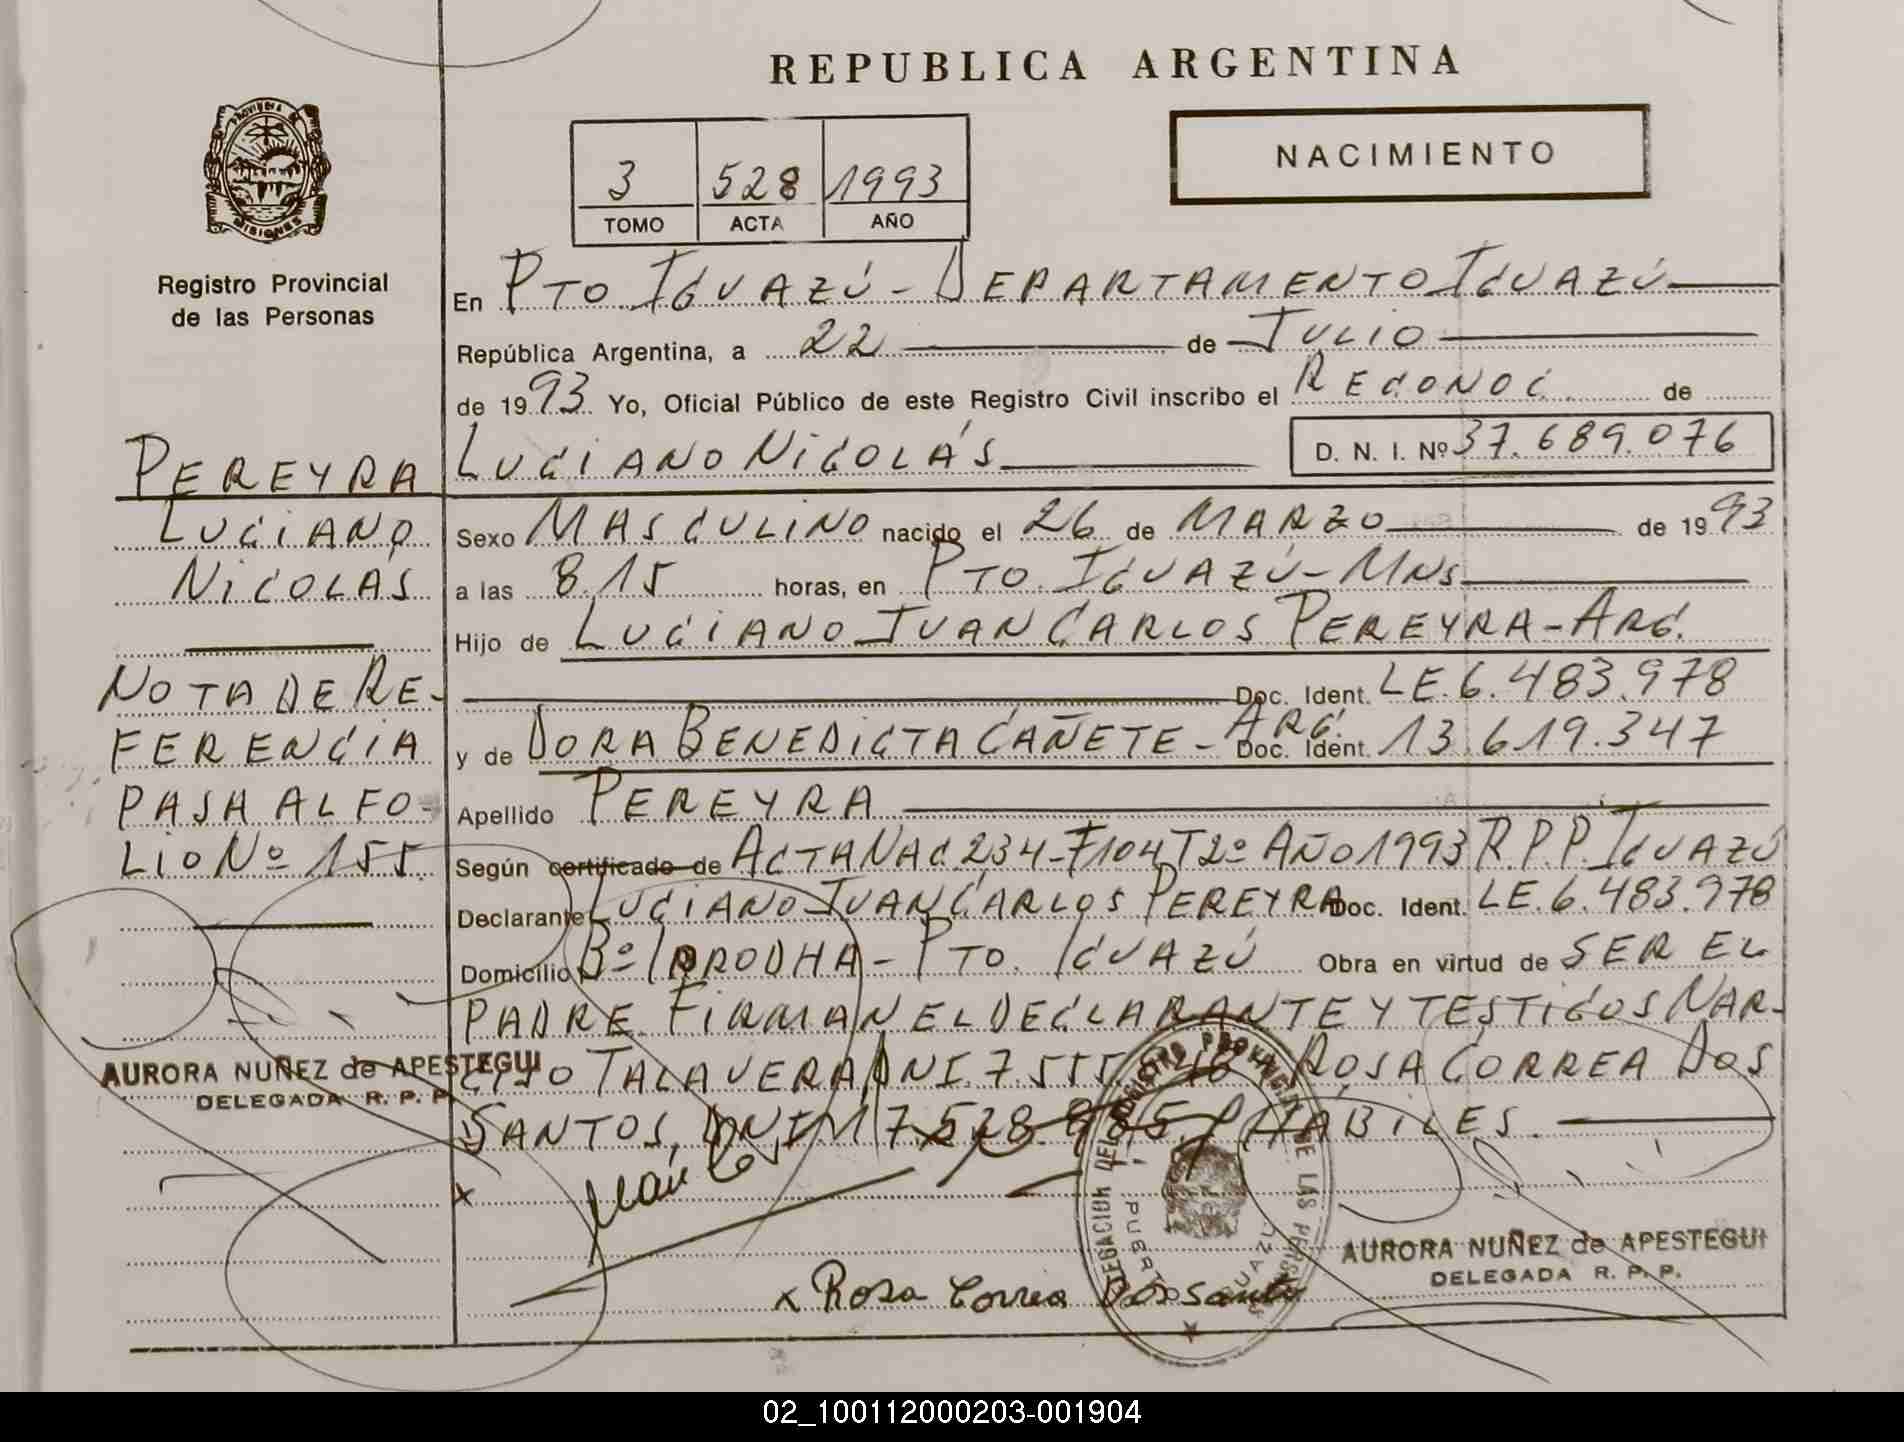 REPUBLICA ARGENTINA
PROVINCIA
MISIONES
Registro Provincial
de las Personas
3 528 1993
TOMO ACTA AÑO
NACIMIENTO
En PTO. IGUAZÚ - DEPARTAMENTO IGUAZÚ
República Argentina, a 22 de JULIO
de 1993 Yo, Oficial Público de este Registro Civil inscribo el RECONOC. de
LUCIANO NICOLÁS D. N. I. Nº 37.689.076
PEREYRA
LUCIANO
NICOLÁS
NOTA DE RE-
FERENCIA
PASA AL FO-
LIO Nº 155.
AURORA NUÑEZ de APESTEGUI
DELEGADA R. P. P.
Sexo MASCULINO nacido el 26 de MARZO de 1993
a las 8.15 horas, en PTO. IGUAZÚ - MNS
Hijo de LUCIANO JUAN CARLOS PEREYRA - ARG.
Doc. Ident. LE. 6.483.978
y de DORA BENEDICTA CAÑETE - ARG. Doc. Ident. 13.619.347
Apellido PEREYRA
Según certificado de ACTA NAC. 234 - F104 T2º AÑO 1993 R.P.P. IGUAZÚ
Declarante LUCIANO JUAN CARLOS PEREYRA Doc. Ident. LE. 6.483.978
Domicilio Bº - PTO. IGUAZÚ Obra en virtud de SER EL
PADRE. FIRMAN EL DECLARANTE Y TESTIGOS NAR-
CISO TALAVERA DNI. 7.555. ROSA CORREA DOS
SANTOS, DNI. 17.528. HÁBILES.
x
x Rosa Correa Dos Santos
DELEGACION DEL REGISTRO PROVINCIAL DE LAS PERSONAS
PUERTO IGUAZU
AURORA NUÑEZ de APESTEGUI
DELEGADA R. P. P.
02_100112000203-001904